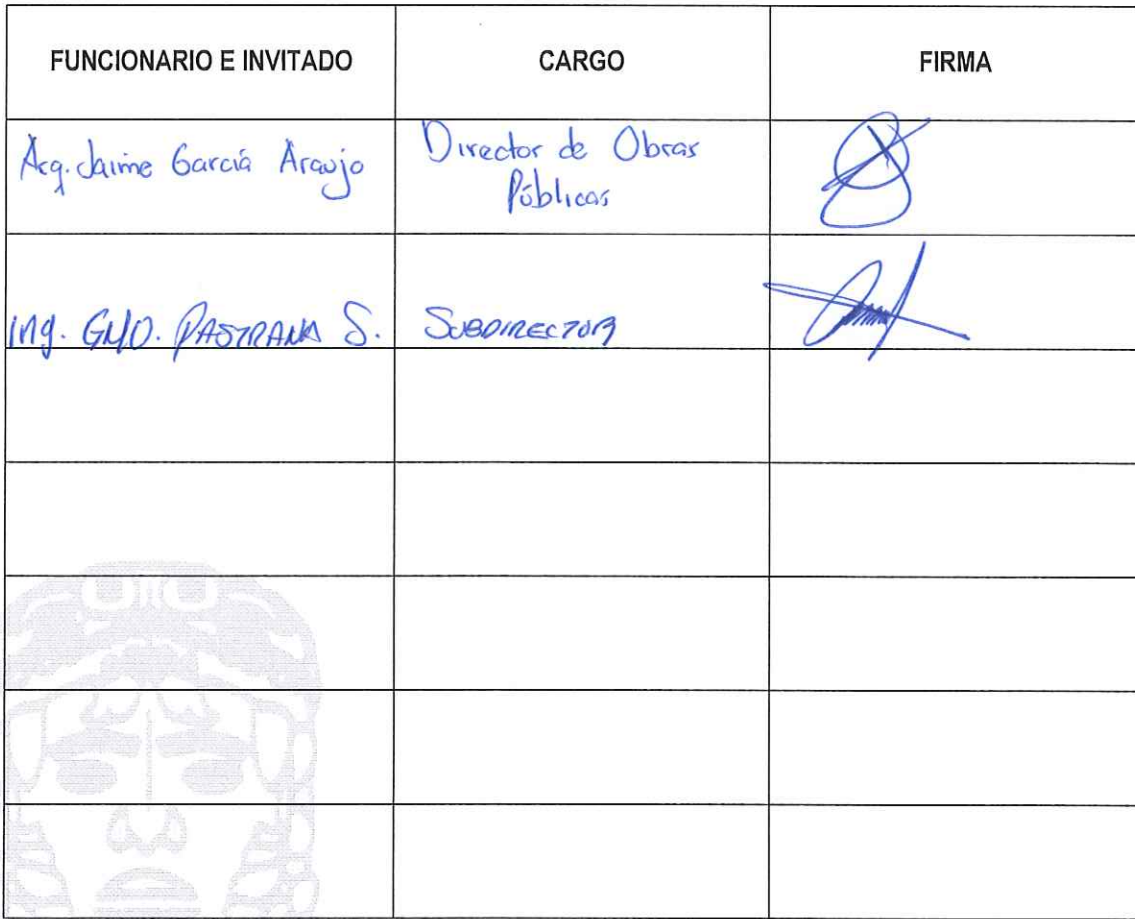 FUNCIONARIO E INVITADO CARGO FIRMA
Arq. Jaime García Araujo Director de Obras
Públicas
Ing. GMO. PASTRANA S. SUBDIRECTOR